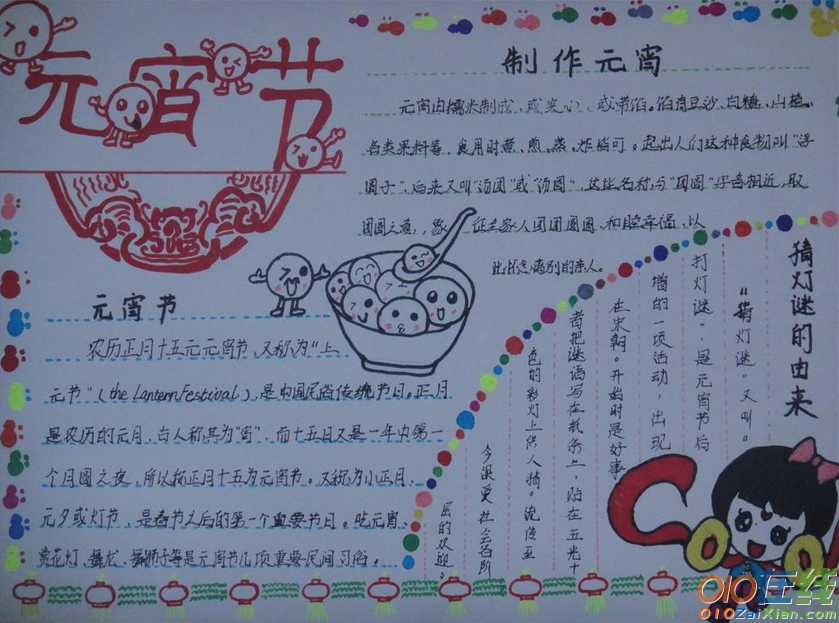 元宵节
制作元宵
元宵由糯米制成，或实心，或带馅。馅有豆沙、白糖、山楂、
各类果料等，食用时煮、煎、蒸、炸皆可。起出人们这种食物叫“浮
圆子”，后来又叫“汤团”或“汤圆”，这些名称与“团圆”字音相近，取
团圆之意，象 征全家人团团圆圆，和睦幸福，以
此怀念离别的亲人。
元宵节
农历正月十五元元宵节，又称为“上
元节”（the Lantern Festival），是中国民俗传统节日。正月
是农历的元月，古人称其为“宵”，而十五日又是一年中第一
个月圆之夜，所以称正月十五为元宵节。又称为小正月、
元夕或灯节，是春节之后的第一个重要节日。吃元宵、
赏花灯、舞龙、舞狮子等是元宵节几项重要民间习俗。
猜灯谜的由来
“猜灯谜”又叫“
打灯谜”，是元宵节后
增的一项活动，出现
在宋朝。开始时是好事
者把谜语写在纸条上，贴在五光十
色的彩灯上供人猜。流传至
今深受社会各阶
层的欢迎。
010在线
010ZaiXian.com